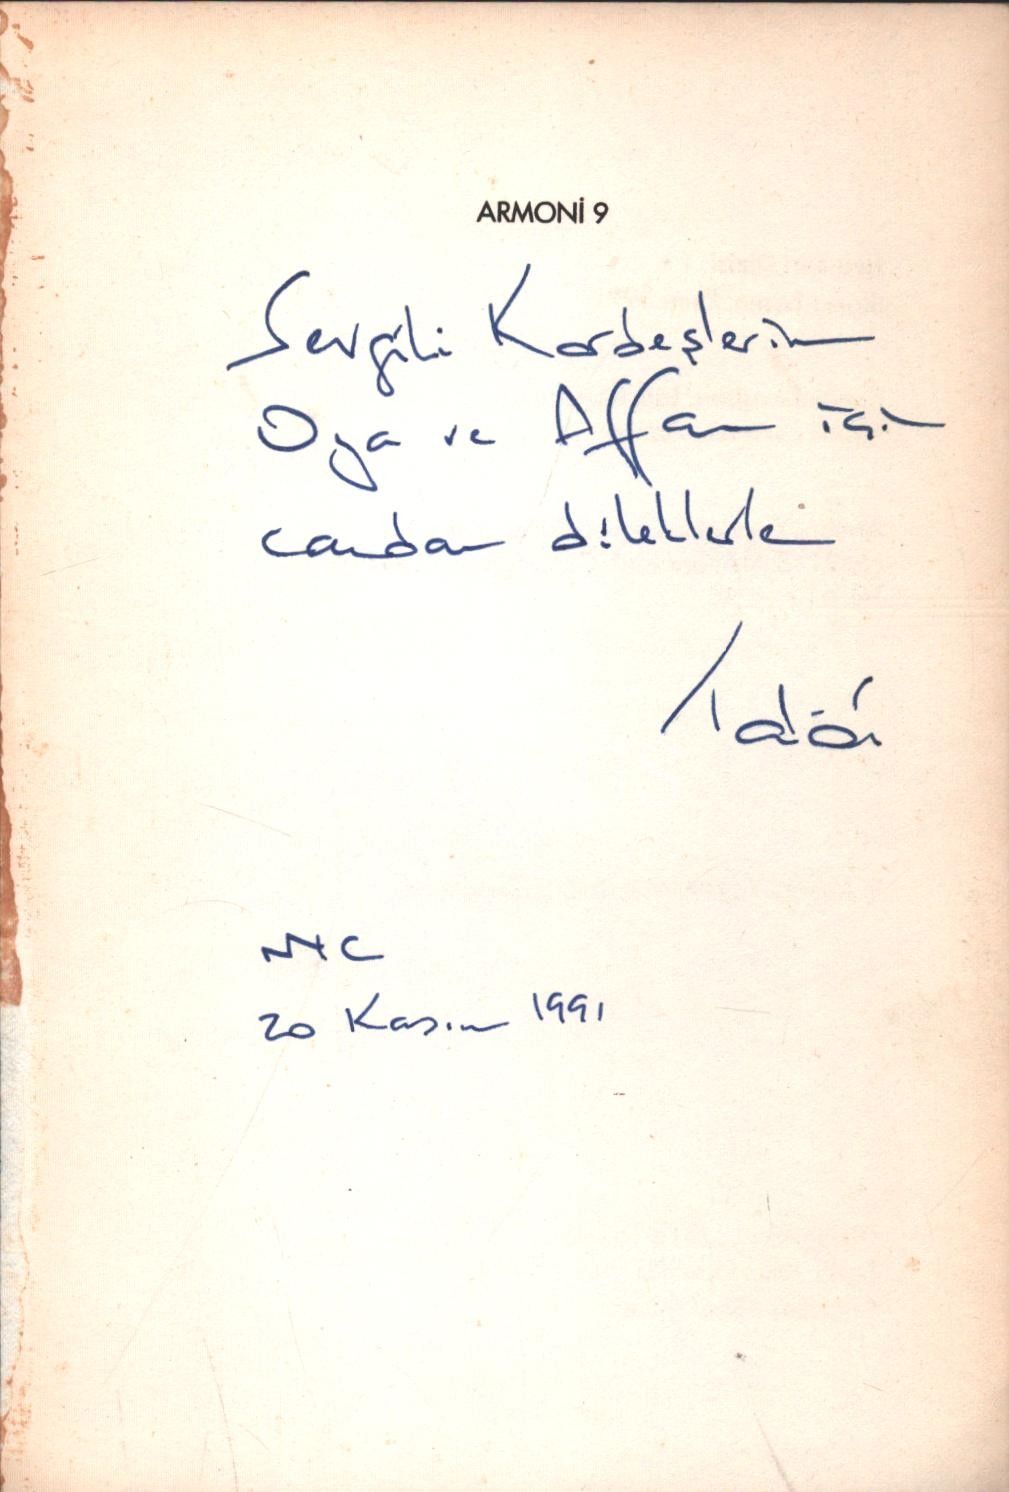 ARMONİ 9
Sevgili Kardeşlerim
Oya ve Affan için
candan dileklerle
NYC
20 Kasım 1991